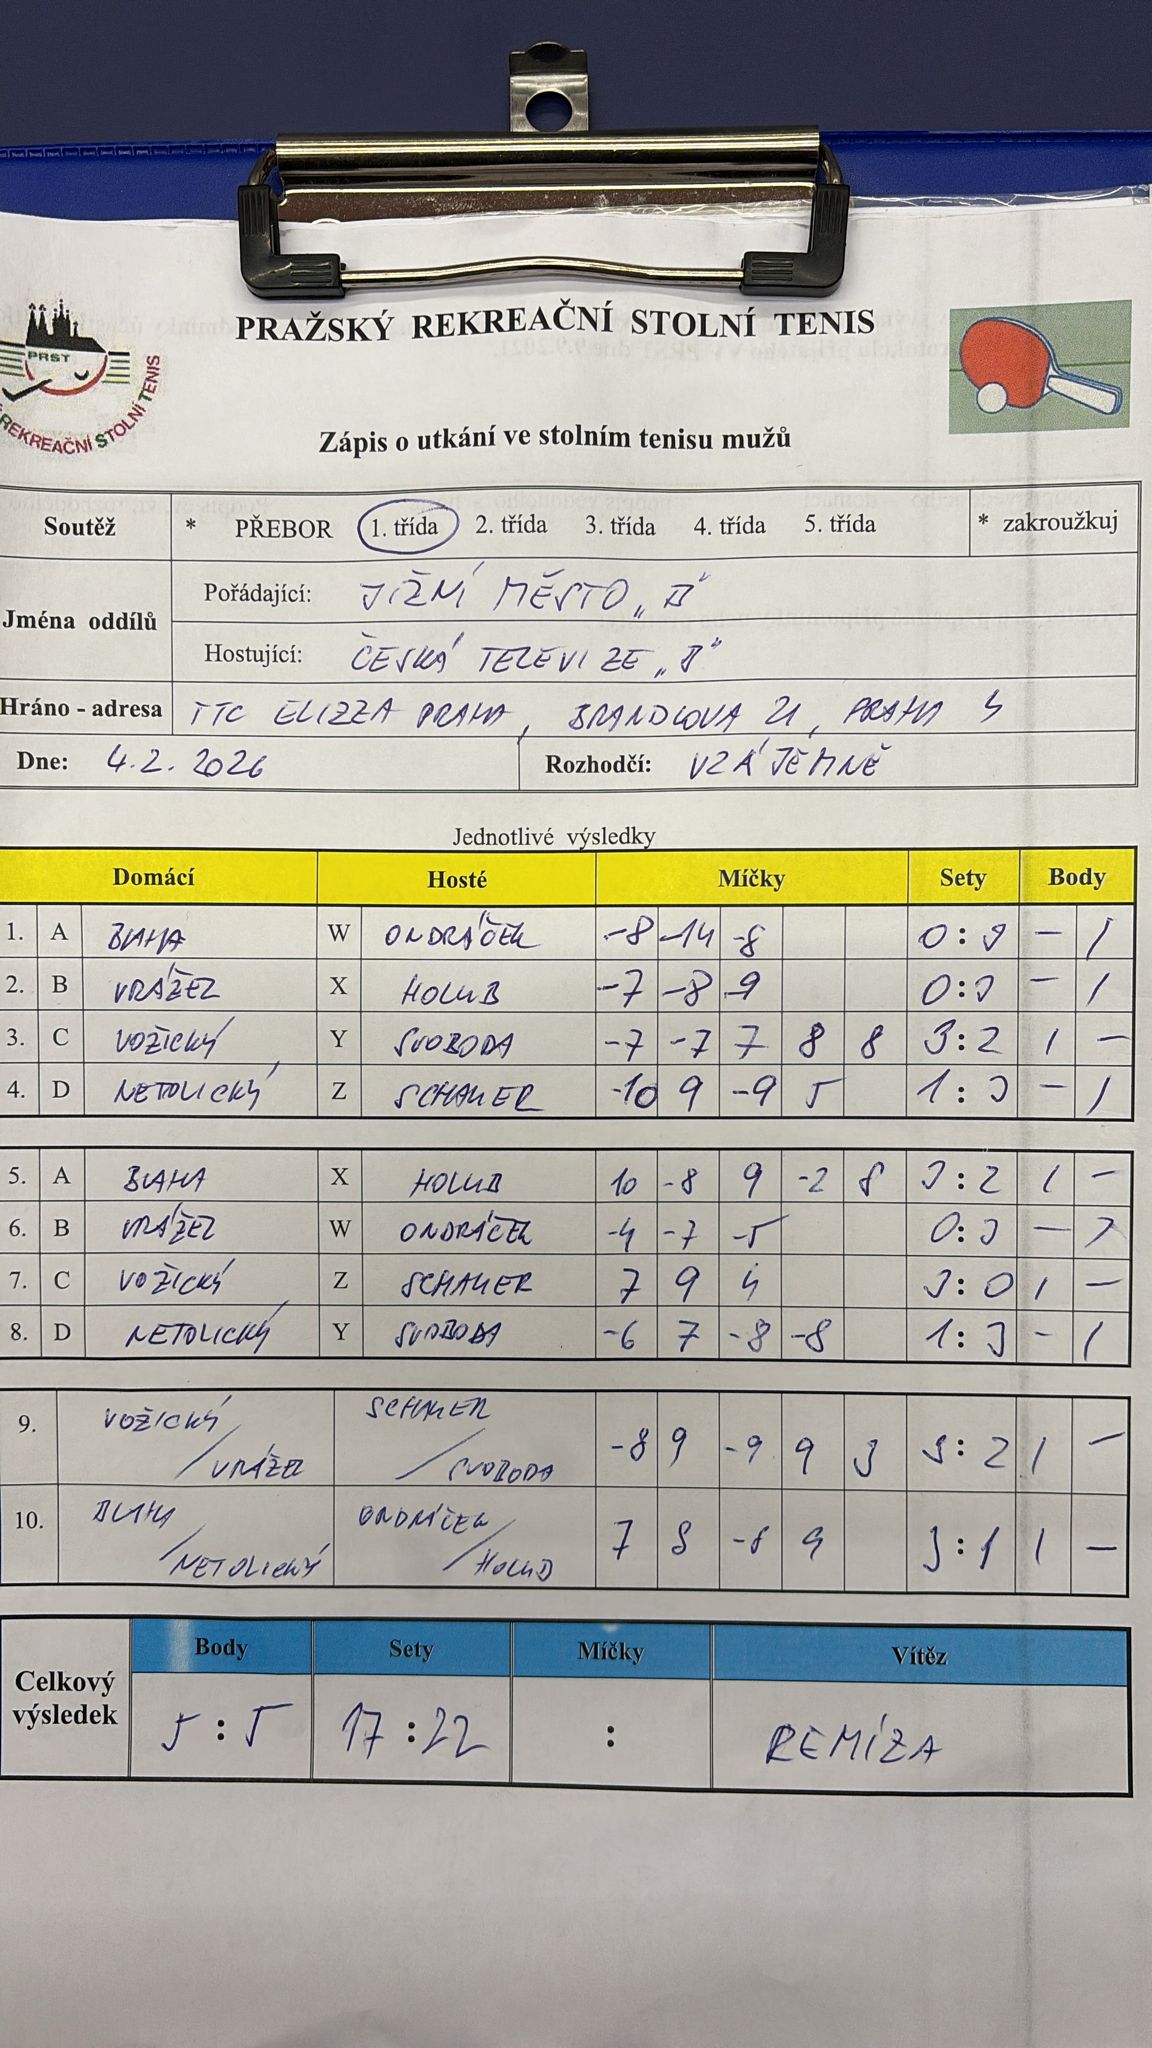 PRAŽSKÝ REKREAČNÍ STOLNÍ TENIS
PRST
REKREAČNÍ STOLNÍ TENIS
Zápis o utkání ve stolním tenisu mužů
Soutěž * PŘEBOR 1. třída 2. třída 3. třída 4. třída 5. třída * zakroužkuj
Jména oddílů
Pořádající: JIŽNÍ MĚSTO „B"
Hostující: ČESKÁ TELEVIZE „B"
Hráno - adresa TTC ELIZZA PRAHA, BRANDLOVA 21, PRAHA 4
Dne: 4.2.2026 Rozhodčí: VZÁJEMNĚ
Jednotlivé výsledky
Domácí Hosté Míčky Sety Body
1. A BLAHA W ONDRÁČEK -8 -14 -8 0:3 - 1
2. B VRÁŽEL X HOLUB -7 -8 -9 0:3 - 1
3. C VOŽICKÝ Y SVOBODA -7 -7 7 8 8 3:2 1 -
4. D NETOLICKÝ Z SCHAUER -10 9 -9 5 1:3 - 1
5. A BLAHA X HOLUB 10 -8 9 -2 8 3:2 1 -
6. B VRÁŽEL W ONDRÁČEK -4 -7 -5 0:3 - 1
7. C VOŽICKÝ Z SCHAUER 7 9 4 3:0 1 -
8. D NETOLICKÝ Y SVOBODA -6 7 -8 -8 1:3 - 1
9. VOŽICKÝ / VRÁŽEL SCHAUER / SVOBODA -8 9 -9 9 3 3:2 1 -
10. BLAHA / NETOLICKÝ ONDRÁČEK / HOLUB 7 8 -8 9 3:1 1 -
Body Sety Míčky Vítěz
Celkový výsledek 5:5 17:22 : REMÍZA